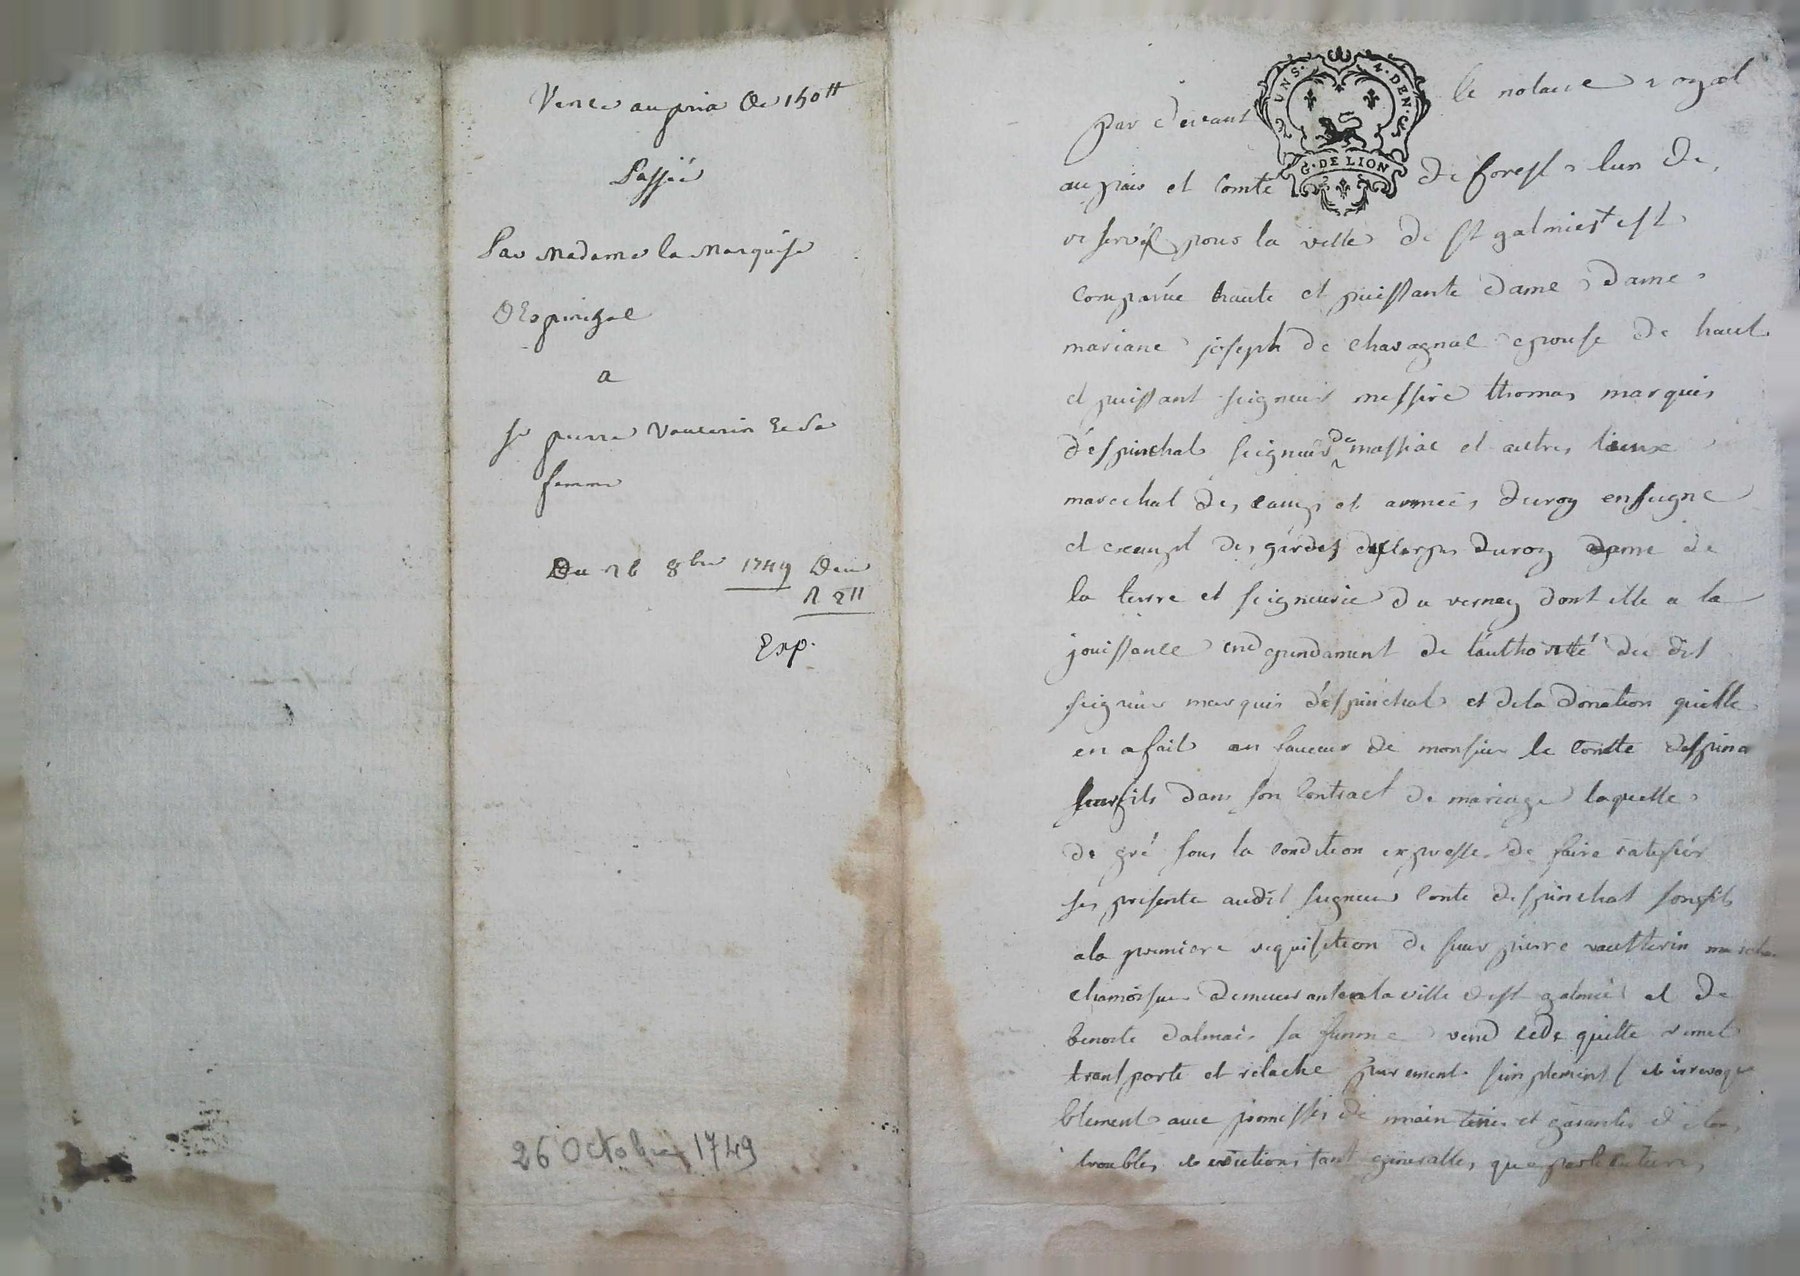 Vente au prix de 150tt
Passée
Par Madame la Marquise
D'Espinchal
a
Sr pierre Vauterin Et Sa
femme
Du 26 8bre 1749
Exp.
26 Octobre 1749
UNS. 4. DEN.
G. DE LION
par devant le notaire royal
au païs et Comté de forest lun des
reservés pour la ville de st galmier est
Comparue haute et puissante dame dame
mariane joseph de chavagnac epouse de haut
et puissant seigneur messire thomas marquis
d'espinchal seigneur de massiac et autres lieux
marechal des camps et armées du roy enseigne
et exempt des gardes du corps du roy dame de
la terre et seigneurie du verney dont elle a la
jouissance endependament de l'authorité du dit
seigneur marquis d'espinchal et de la donation quelle
en a fait en faveur de monsieur le comte
fils dans son Contract de mariage laquelle
de gré sous la condition expresse de faire ratifier
ses presente audit seigneur Conte despinchal son fils
a la premiere requisition de sieur pierre vautterin
chamoiseur demeurant en la ville de st galmier et de
benoite dalmais sa femme vend cede quitte remet
transporte et relache purement simplement et irrevoqua
blement avec promesses de maintenir et garantir de tous
troubles et evictions tant generalles que particulieres